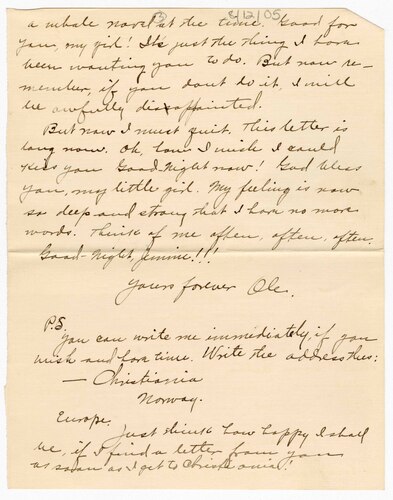 8/2/05
a whole novel at the time. Good for
you, my girl! It's just the thing I have
been wanting you to do. But now re-
member, if you don't do it, I will
be awfully disappointed.
But now I must quit. This letter is
long now. Oh, how I wish I could
kiss you Good-Night now! God bless
you, my little girl. My feeling is now
so deep and strong that I have no more
words. Think of me often, often, often.
Good-Night, Jennie!!!
Yours forever Ole.
P.S.
You can write me immediately, if you
wish and have time. Write the address thus:
— Christiania
Norway.
Europe.
Just think how happy I shall
be, if I find a letter from you
as soon as I get to Christiania!